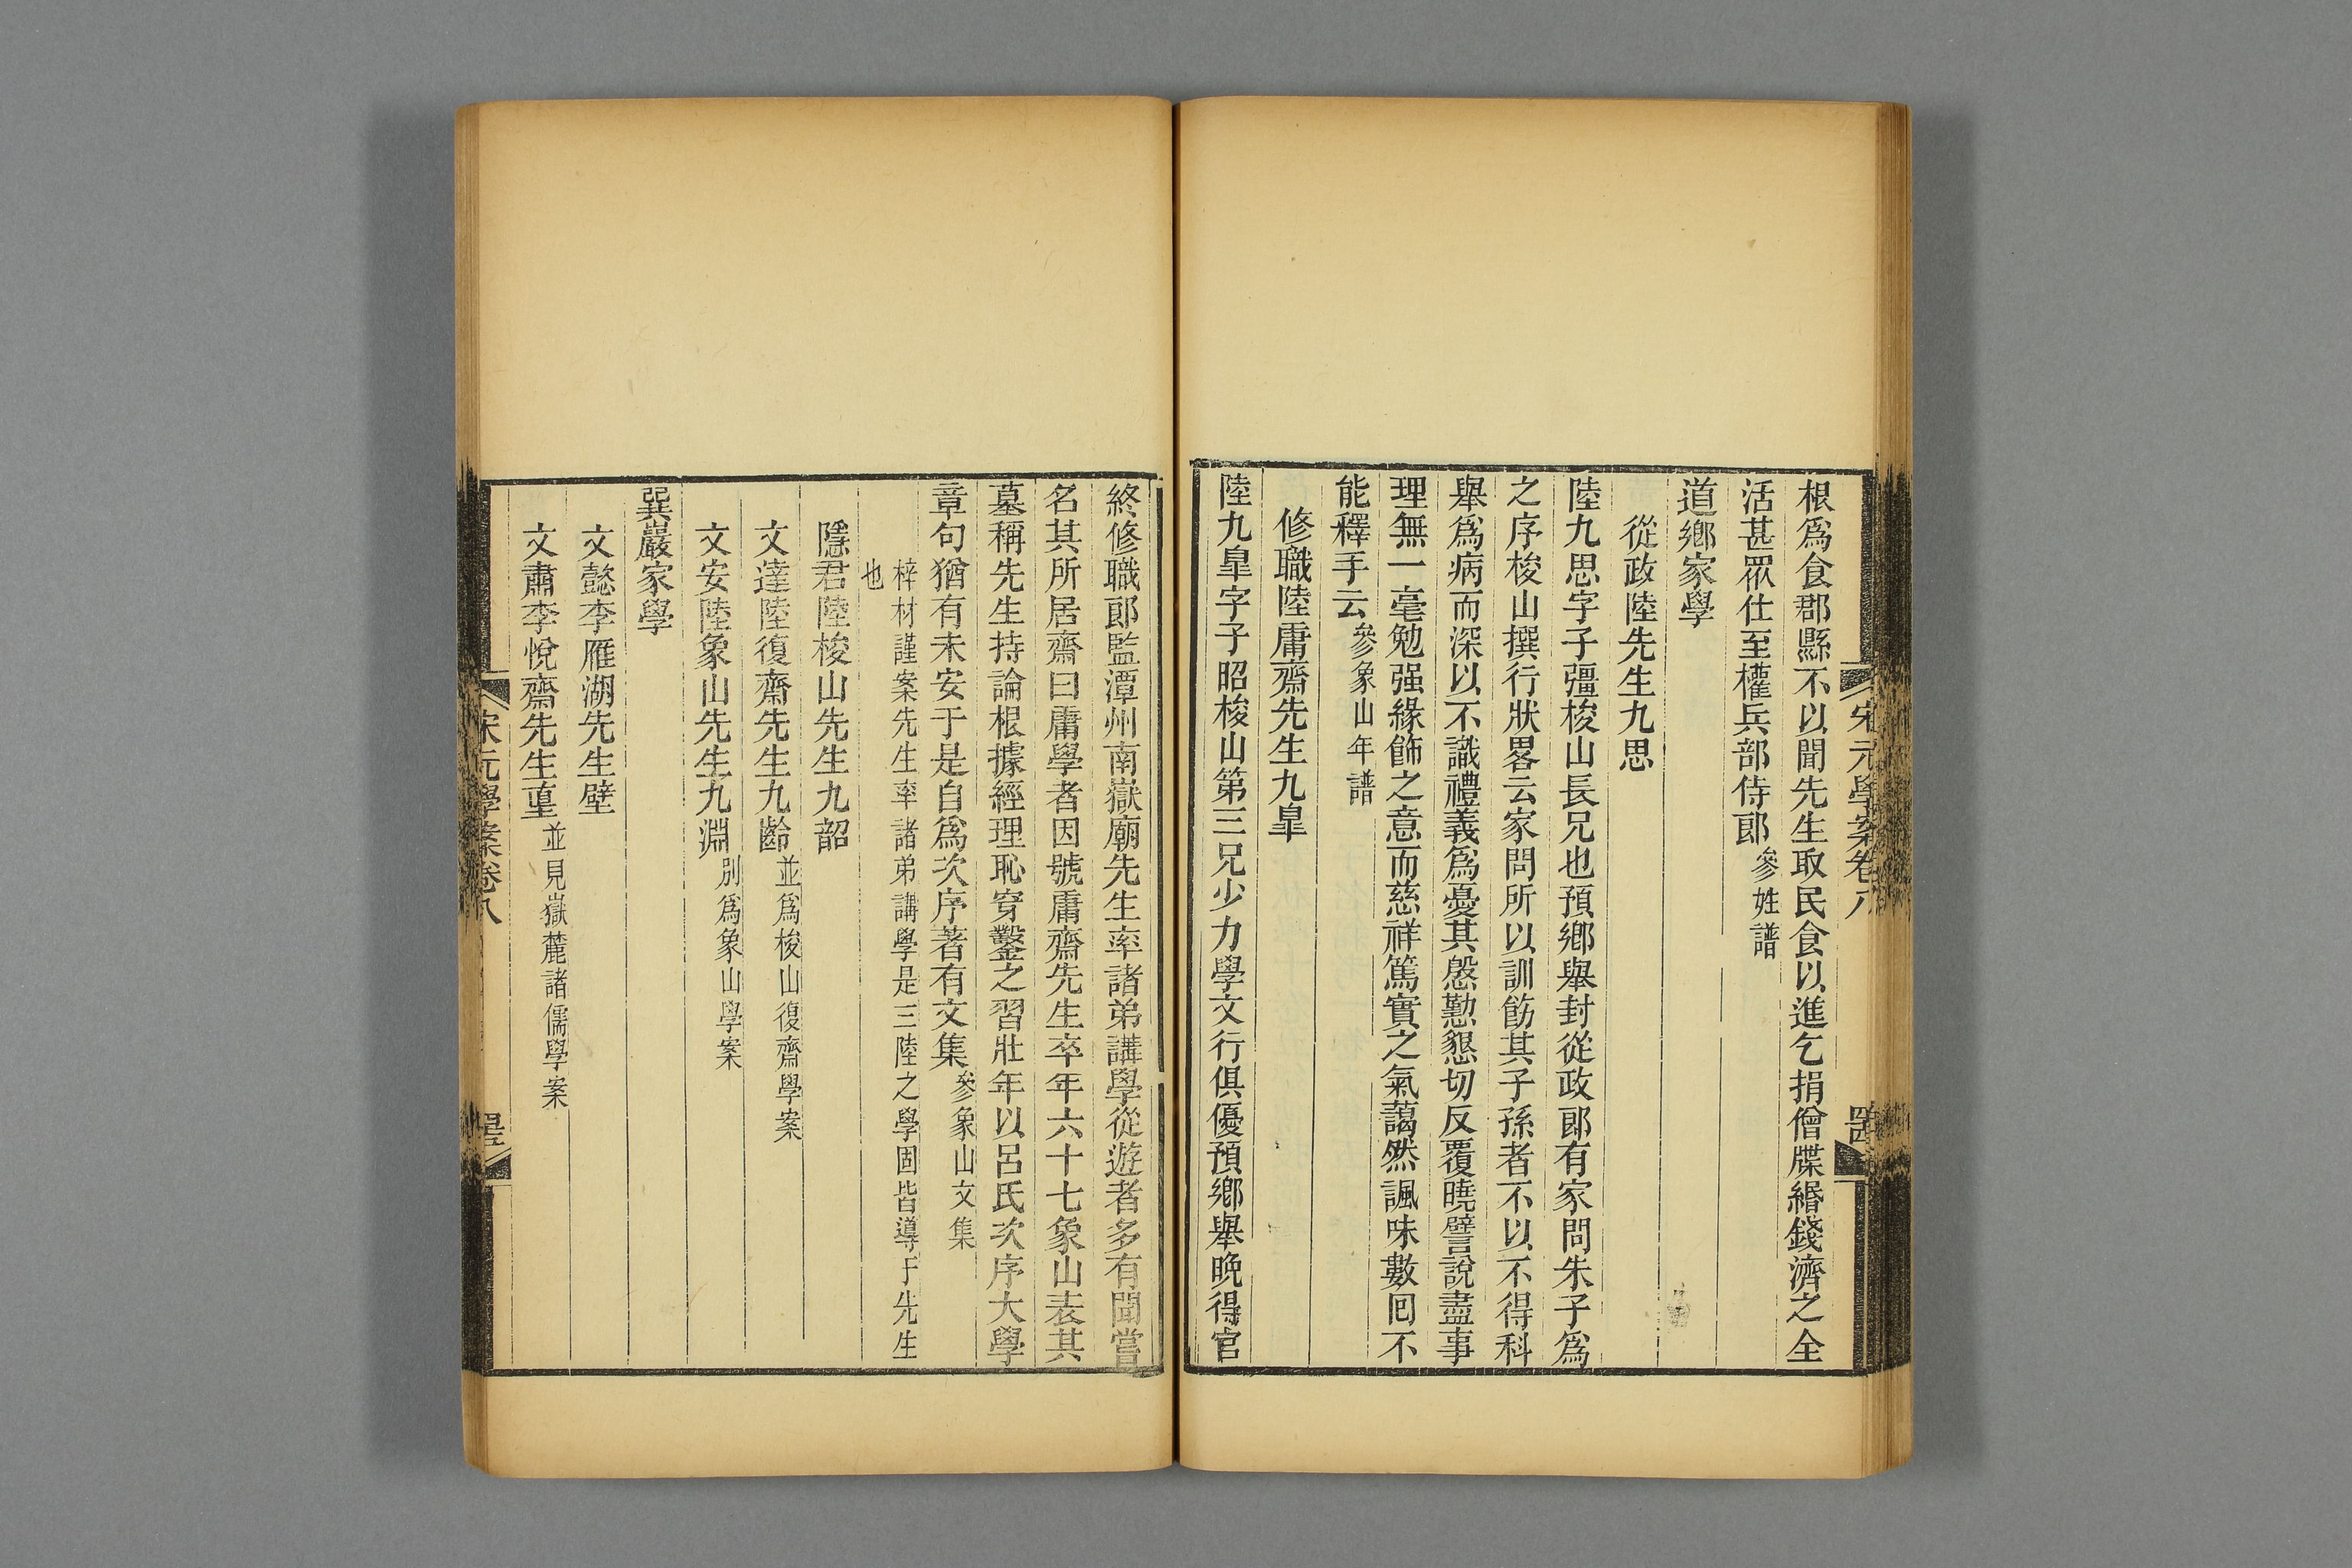 根爲食郡縣不以聞先生取民食以進乞捐僧牒緡錢濟之全
活甚眾仕至權兵部侍郎參姓譜
道鄉家學
從政陸先生九思
陸九思字子彊梭山長兄也預鄉舉封從政郎有家問朱子爲
之序梭山撰行狀畧云家問所以訓飭其子孫者不以不得科
舉爲病而深以不識禮義爲憂其慇懃懇切反覆曉譬說盡事
理無一毫勉强緣飾之意而慈祥篤實之氣藹然諷味數囘不
能釋手云參象山年譜
修職陸庸齋先生九臯
陸九臯字子昭梭山第三兄少力學文行俱優預鄉舉晚得官
宋元學案卷八
終修職郎監潭州南嶽廟先生率諸弟講學從遊者多有聞嘗
名其所居齋曰庸學者因號庸齋先生卒年六十七象山表其
墓稱先生持論根據經理恥穿鑿之習壯年以呂氏次序大學
章句猶有未安于是自爲次序著有文集參象山文集
梓材謹案先生率諸弟講學是三陸之學固皆導于先生
也
隱君陸梭山先生九韶
文達陸復齋先生九齡並爲梭山復齋學案
文安陸象山先生九淵別爲象山學案
巽巖家學
文懿李雁湖先生壁
文肅李悅齋先生𡌴並見嶽麓諸儒學案
宋元學案卷八